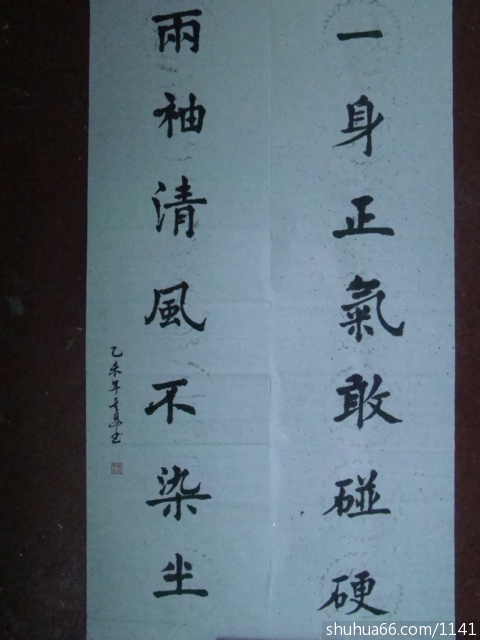 一身正氣敢碰硬
兩袖清風不染尘
乙未年
shuhua66.com/1141